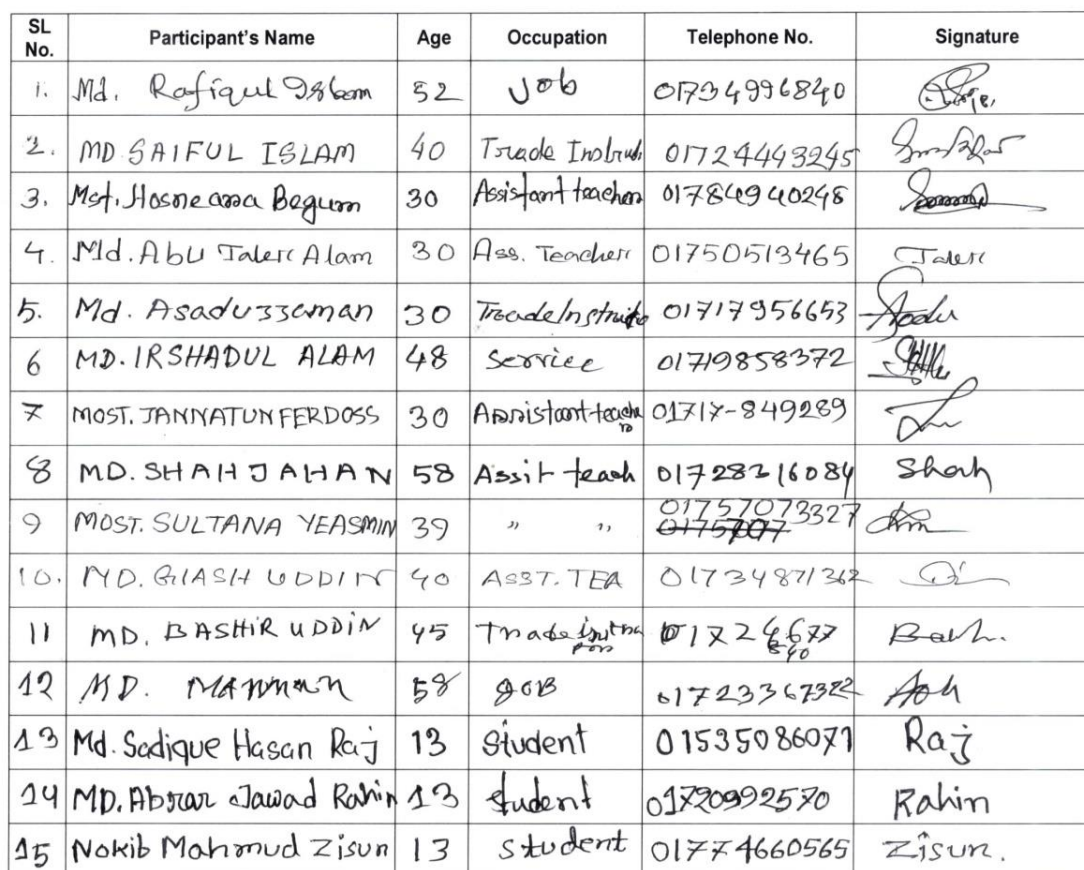 SL No. Participant's Name Age Occupation Telephone No. Signature
1. Md. Rafiqul Islam 52 Job 01734996840
2. MD. SAIFUL ISLAM 40 Trade Instruct 01724443245
3. Mst. Hosneara Begum 30 Assistant teacher 01784940248
4. Md. Abu Taler Alam 30 Ass. Teacher 01750513465 Taler
5. Md. Asaduzzaman 30 Trade Instructo 01717956653 Asadu
6 MD. IRSHADUL ALAM 48 Service 01719858372
7 MOST. JANNATUN FERDOSS 30 Assistant teacher 01717-849289
8 MD. SHAH JAHAN 58 Assit teach 01728316084 Shah
9 MOST. SULTANA YEASMIN 39 " " 01757073327
10. MD. GIASH UDDIN 40 ASST. TEA 01734871362
11 MD. BASHIR UDDIN 45 Trade 
12 MD. MANNAN 58 JOB 01723367322
13 Md. Sadique Hasan Raj 13 Student 01535086071 Raj
14 MD. Abrar Jawad Rahin 13 student 01720992570 Rahin
15 Nokib Mahmud Zisun 13 student 01774660565 Zisun.